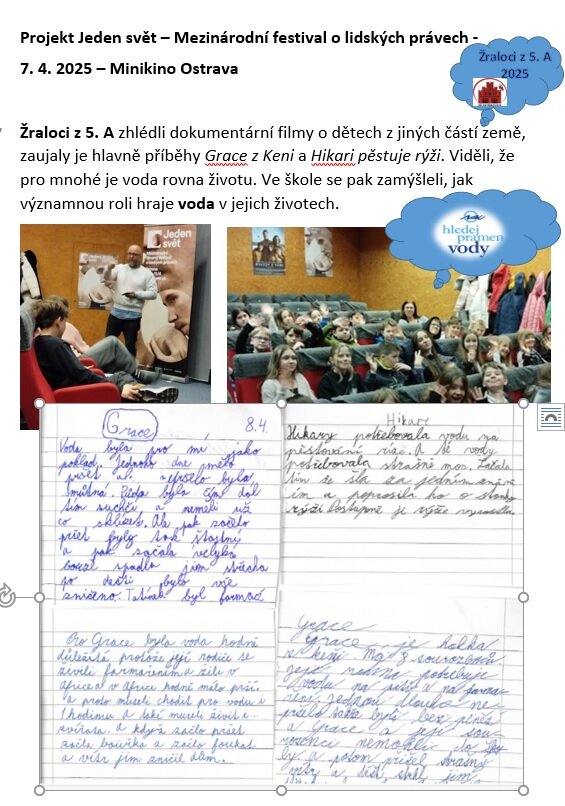 Projekt Jeden svět – Mezinárodní festival o lidských právech -
7. 4. 2025 – Minikino Ostrava
Žraloci z 5. A
2025
Žraloci z 5. A zhlédli dokumentární filmy o dětech z jiných částí země,
zaujaly je hlavně příběhy Grace z Keni a Hikari pěstuje rýži. Viděli, že
pro mnohé je voda rovna životu. Ve škole se pak zamýšleli, jak
významnou roli hraje voda v jejich životech.
hledej
pramen
vody
Jeden
svět
Grace 8.4.
Voda byla pro mi jako
poklad. Jednoho dne mělo
pršet a nepršelo byla
smutná. Půda byla čím dál
tím sušší a neměli už
co sklízet. Ale pak začalo
pršet byly tak šťastný
a pak začala velyká
bouře spadla jim střecha
po dešti bylo vše
zničeno. Tatínek byl farmář
Hikary
Hikary potřebovala vodu na
pěstování rýže. A té vody
potřebovala strašně moc. Začala
tím že šla za jedním
im a poprosila ho o
rýži Postupně jí rýže vyrostla.
Pro Grace byla voda hodně
důležitá protože její rodiče se
živili farmařením a žili v
Africe a v Africe hodně málo prší.
a proto museli chodit pro vodu i
1 hodinu a také museli živit i
zvířata. a když začlo pršet
začla bouřka a začlo foukat
a vítr jim zničil dům.
Grace
Grace je holka
z keni Má 7 sourozenců
její rodina potřebuje
vodu na pití a na farma-
ření jednou dlouho ne-
pršelo byli bez peněz
a Grace a její sou-
rozenci nemohli do
ly a potom přišel strašný
vítr a déšť jim